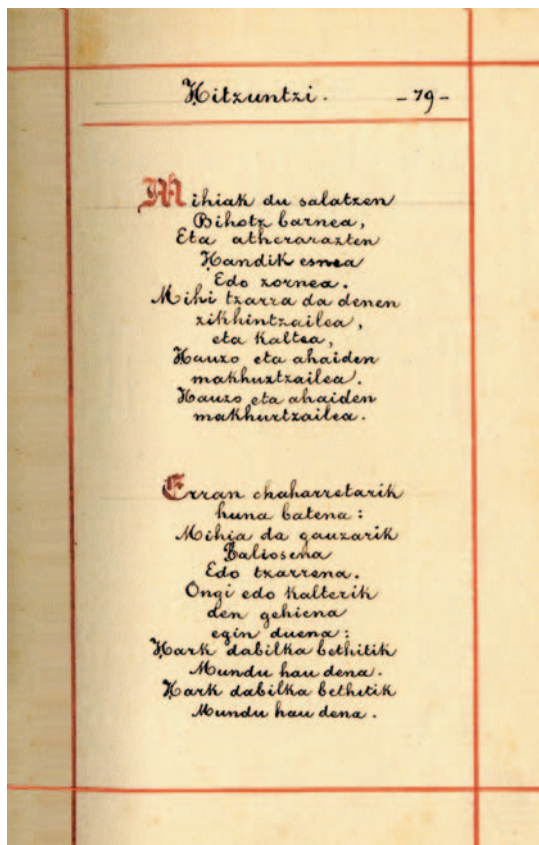 Hitzuntzi. - 79 -
Mihiak du salatzen
Bihotz barnea,
Eta atherarazten
Handik esnea
Edo zornea.
Mihi tzarra da denen
zikhintzailea,
eta kaltea,
Hauzo eta ahaiden
makhurtzailea.
Hauzo eta ahaiden
makhurtzailea.
Erran chaharretarik
huna batena:
Mihia da gauzarik
Baliosena
Edo tzarrena.
Ongi edo kalterik
den gehiena
egin duena:
Hark dabilka bethitik
Mundu hau dena.
Hark dabilka bethitik
Mundu hau dena.